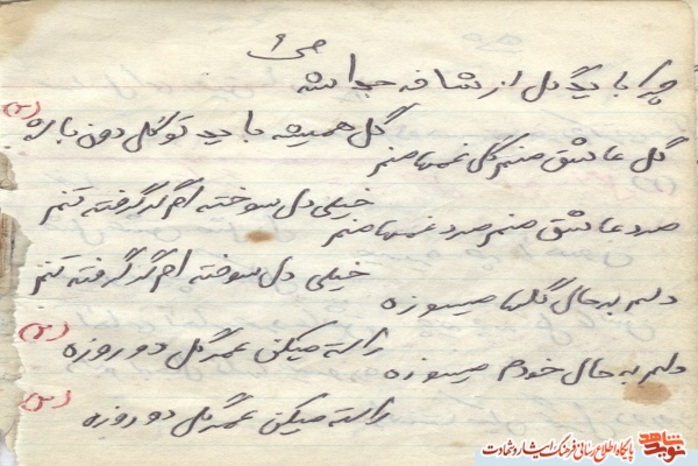 ص ۶
چرا باید گل از شاخه جدا بشه
گل همیشه باید تو گلدون باشه (۲)
گل عاشق منم گل غمها منم
خیلی دل سوخته ام گر گرفته تنم
مرد عاشق منم مرد غمها منم
خیلی دل سوخته ام گر گرفته تنم
دلم به حال گلها میسوزه
راسته میگن عمر گل دو روزه (۲)
دلم به حال خودم میسوزه
راسته میگن عمر گل دو روزه (۲)
نوید شاهد
پایگاه اطلاع رسانی فرهنگ ایثار و شهادت